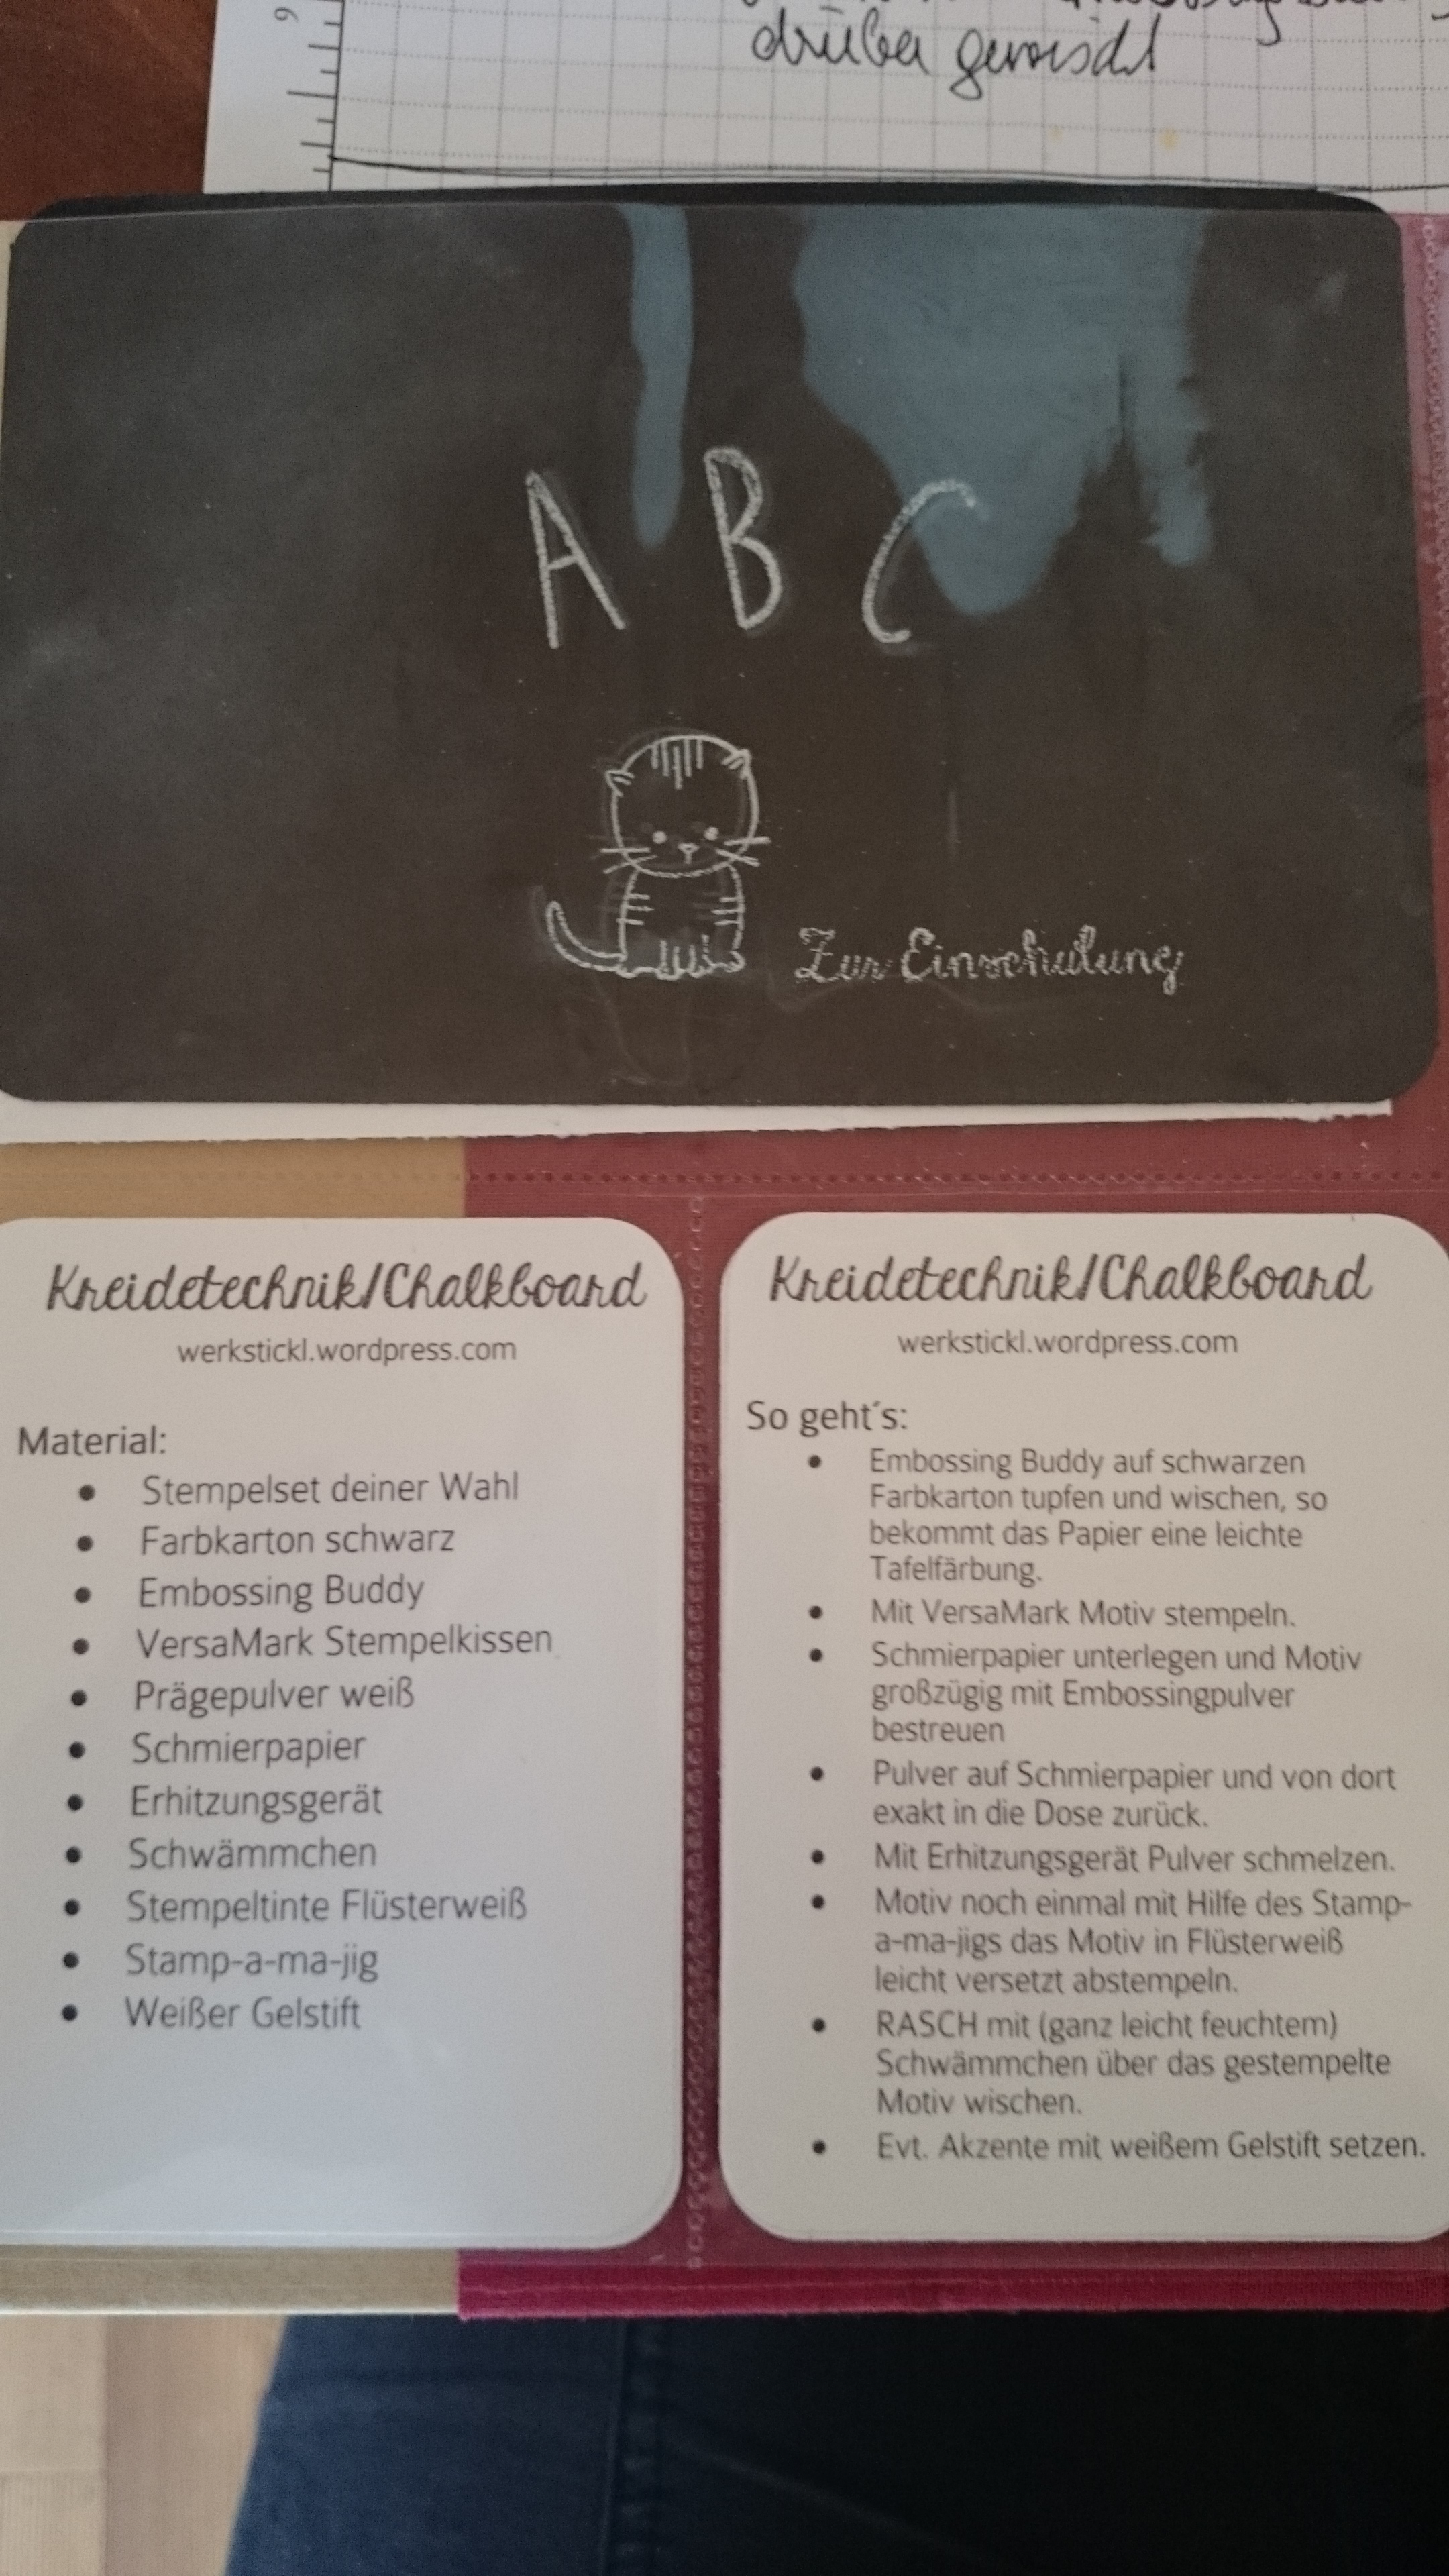 drüber gewischt
A B C
Zur Einschulung
Kreidetechnik/Chalkboard
werkstickl.wordpress.com
Material:
• Stempelset deiner Wahl
• Farbkarton schwarz
• Embossing Buddy
• VersaMark Stempelkissen
• Prägepulver weiß
• Schmierpapier
• Erhitzungsgerät
• Schwämmchen
• Stempeltinte Flüsterweiß
• Stamp-a-ma-jig
• Weißer Gelstift
Kreidetechnik/Chalkboard
werkstickl.wordpress.com
So geht´s:
• Embossing Buddy auf schwarzen
Farbkarton tupfen und wischen, so
bekommt das Papier eine leichte
Tafelfärbung.
• Mit VersaMark Motiv stempeln.
• Schmierpapier unterlegen und Motiv
großzügig mit Embossingpulver
bestreuen
• Pulver auf Schmierpapier und von dort
exakt in die Dose zurück.
• Mit Erhitzungsgerät Pulver schmelzen.
• Motiv noch einmal mit Hilfe des Stamp-
a-ma-jigs das Motiv in Flüsterweiß
leicht versetzt abstempeln.
• RASCH mit (ganz leicht feuchtem)
Schwämmchen über das gestempelte
Motiv wischen.
• Evt. Akzente mit weißem Gelstift setzen.